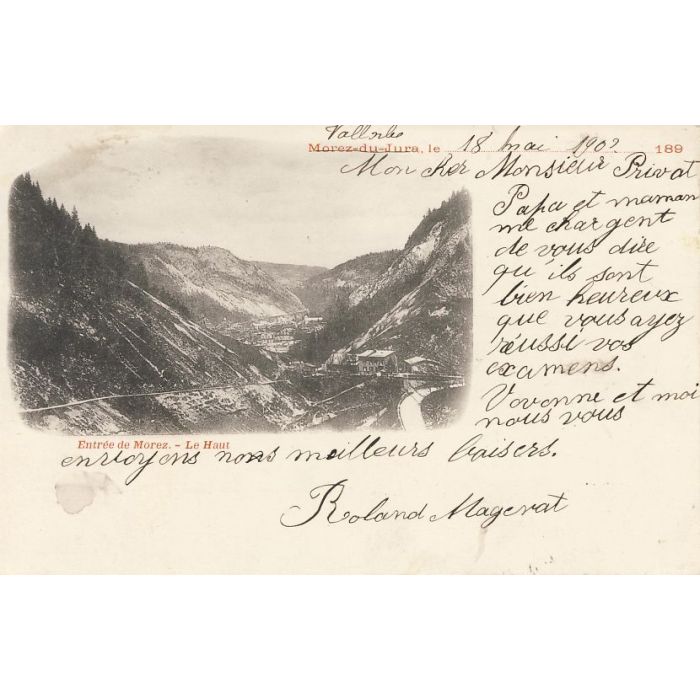 Morez-du-Jura, le 18 mai 1902 189
Mon cher Monsieur Privat
Papa et maman
me chargent
de vous dire
qu'ils sont
bien heureux
que vous ayez
réussi vos
examens.
Vovonne et moi
nous vous
envoyons nos meilleurs baisers.
Roland Magerat
Entrée de Morez. - Le Haut